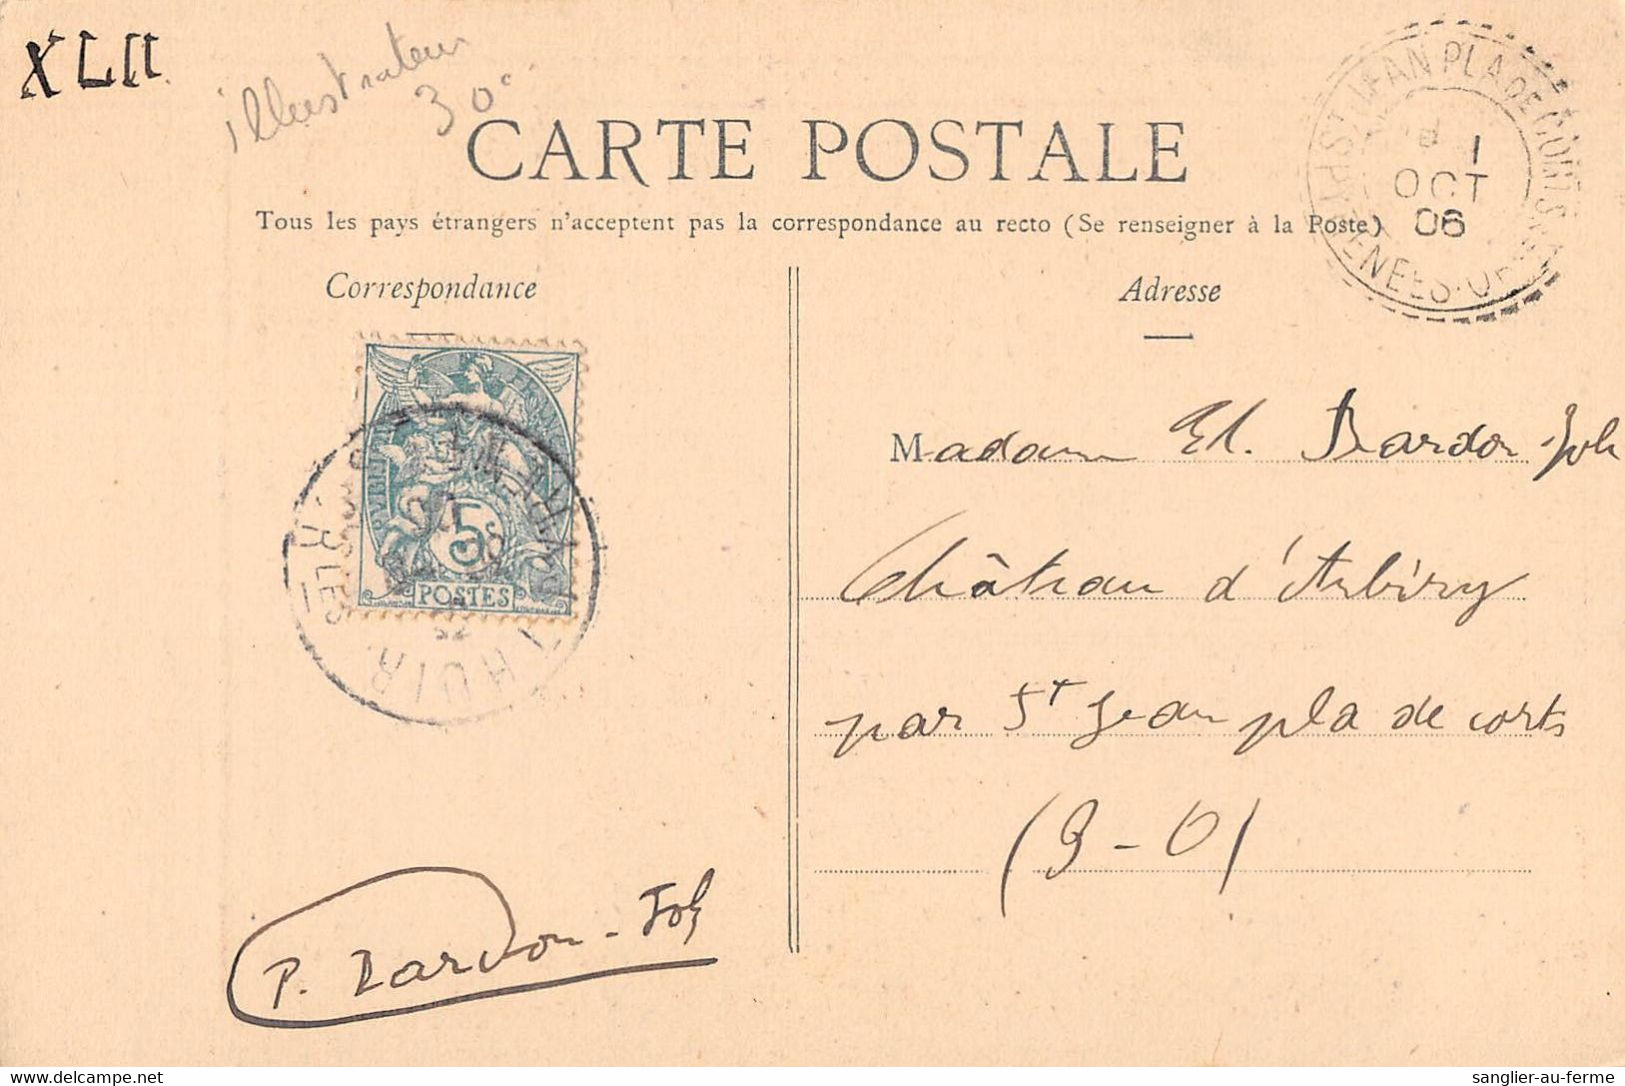 XLII.
illustrateur
30c
CARTE POSTALE
Tous les pays étrangers n'acceptent pas la correspondance au recto (Se renseigner à la Poste)
Correspondance
Adresse
ST JEAN PLA DE CORTS
1
OCT
06
PYRENEES-OR
5c
POSTES
THUIR
Madame El. Bardou-Job
Château d'Arbiry
par St Jean pla de corts
(P-O)
P. Bardou-Job
www.delcampe.net
sanglier-au-ferme